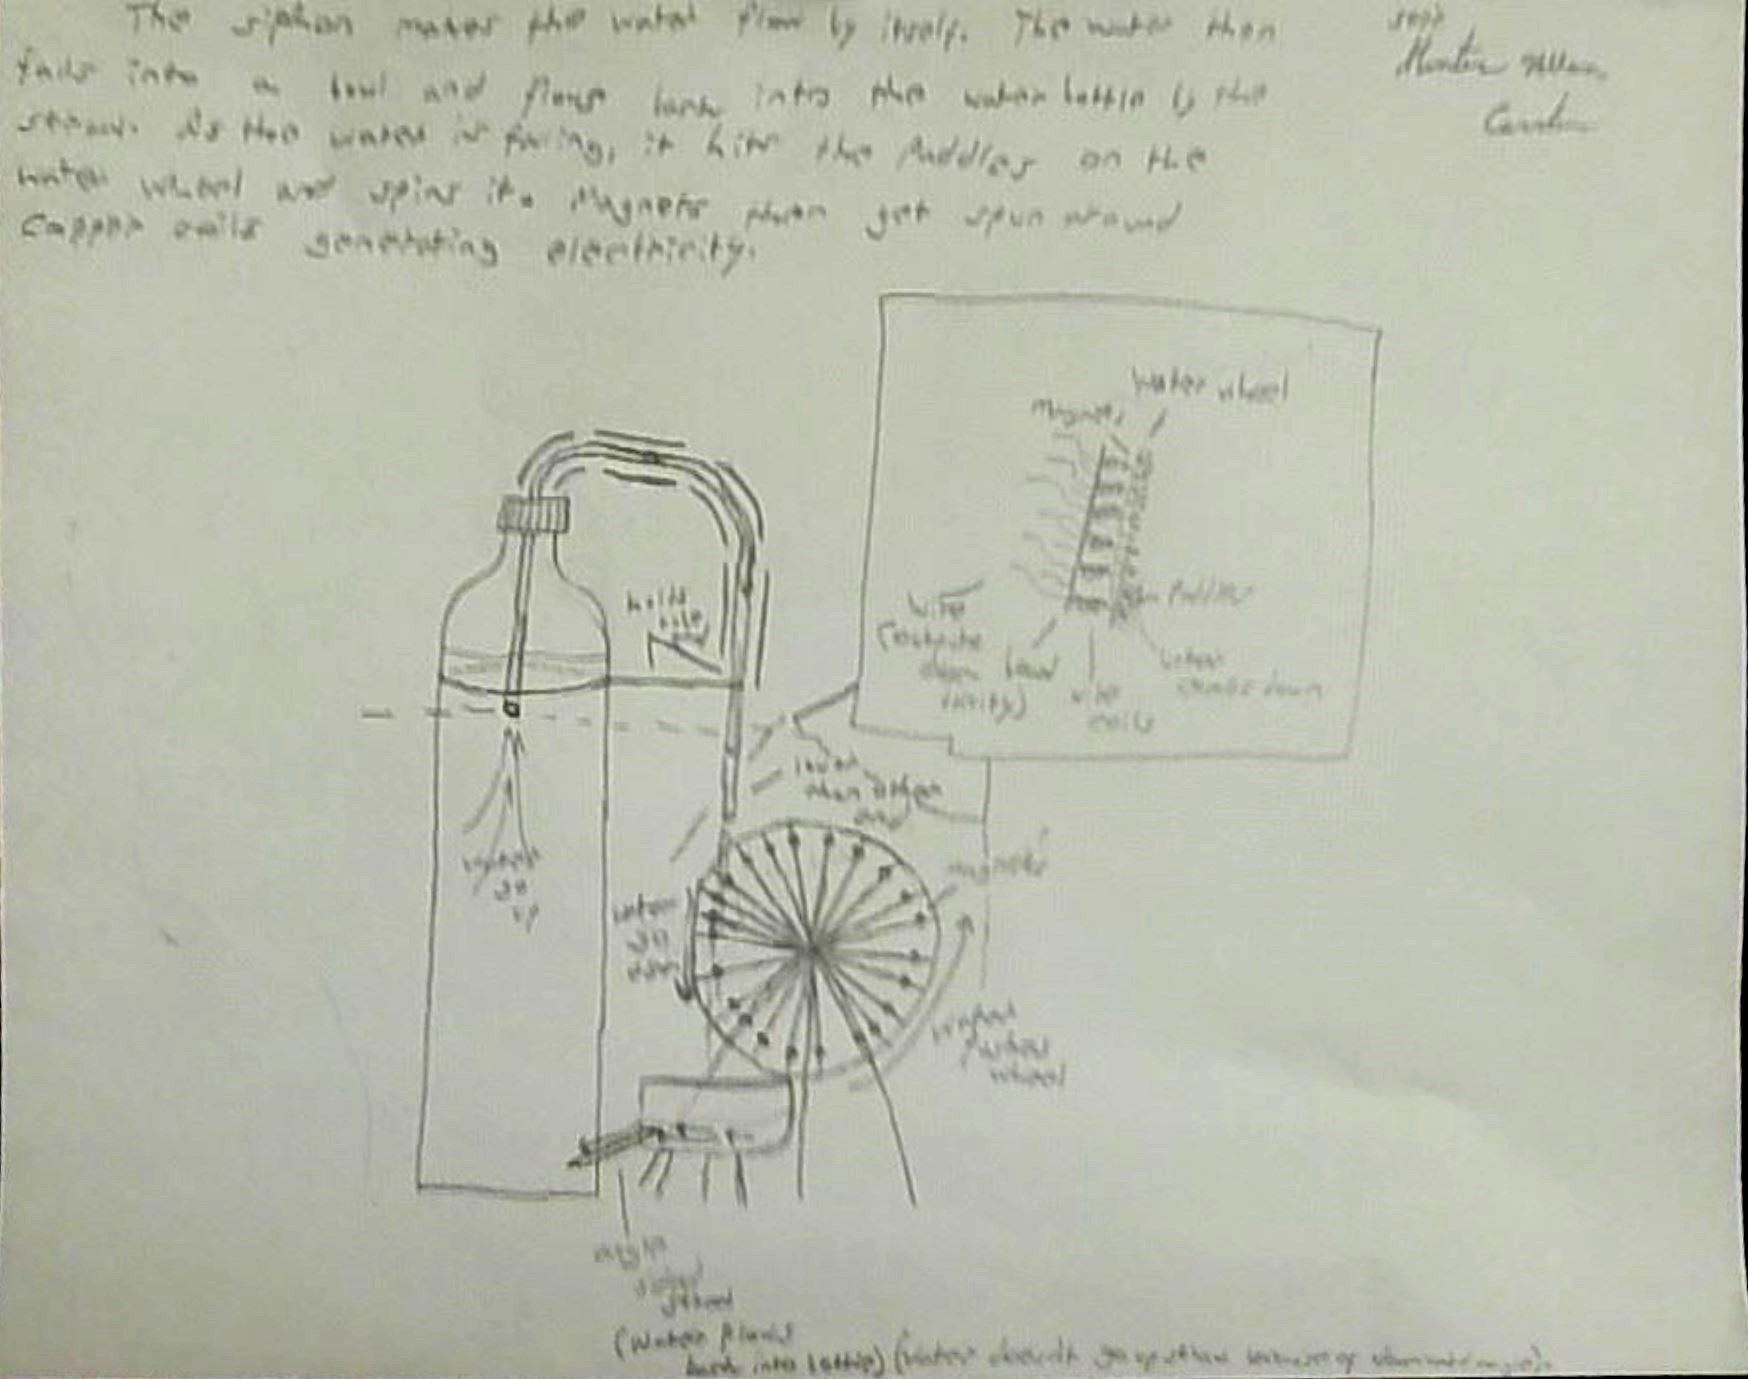 The siphon makes the water flow by itself. The water then
falls into a bowl and flows back into the water bottle by the
straw. As the water is falling, it hits the Paddles on the
water wheel and spins it. Magnets then get spun around
Copper coils generating electricity.
Hunter
Water wheel
Magnets
holds
tube
Paddles
wire
wire
coils
water
comes down
lower
than other
end
magnets
water
go
up
water
go
down
water
wheel
straw
(Water flows
back into bottle) (Water doesn't go up straw because of